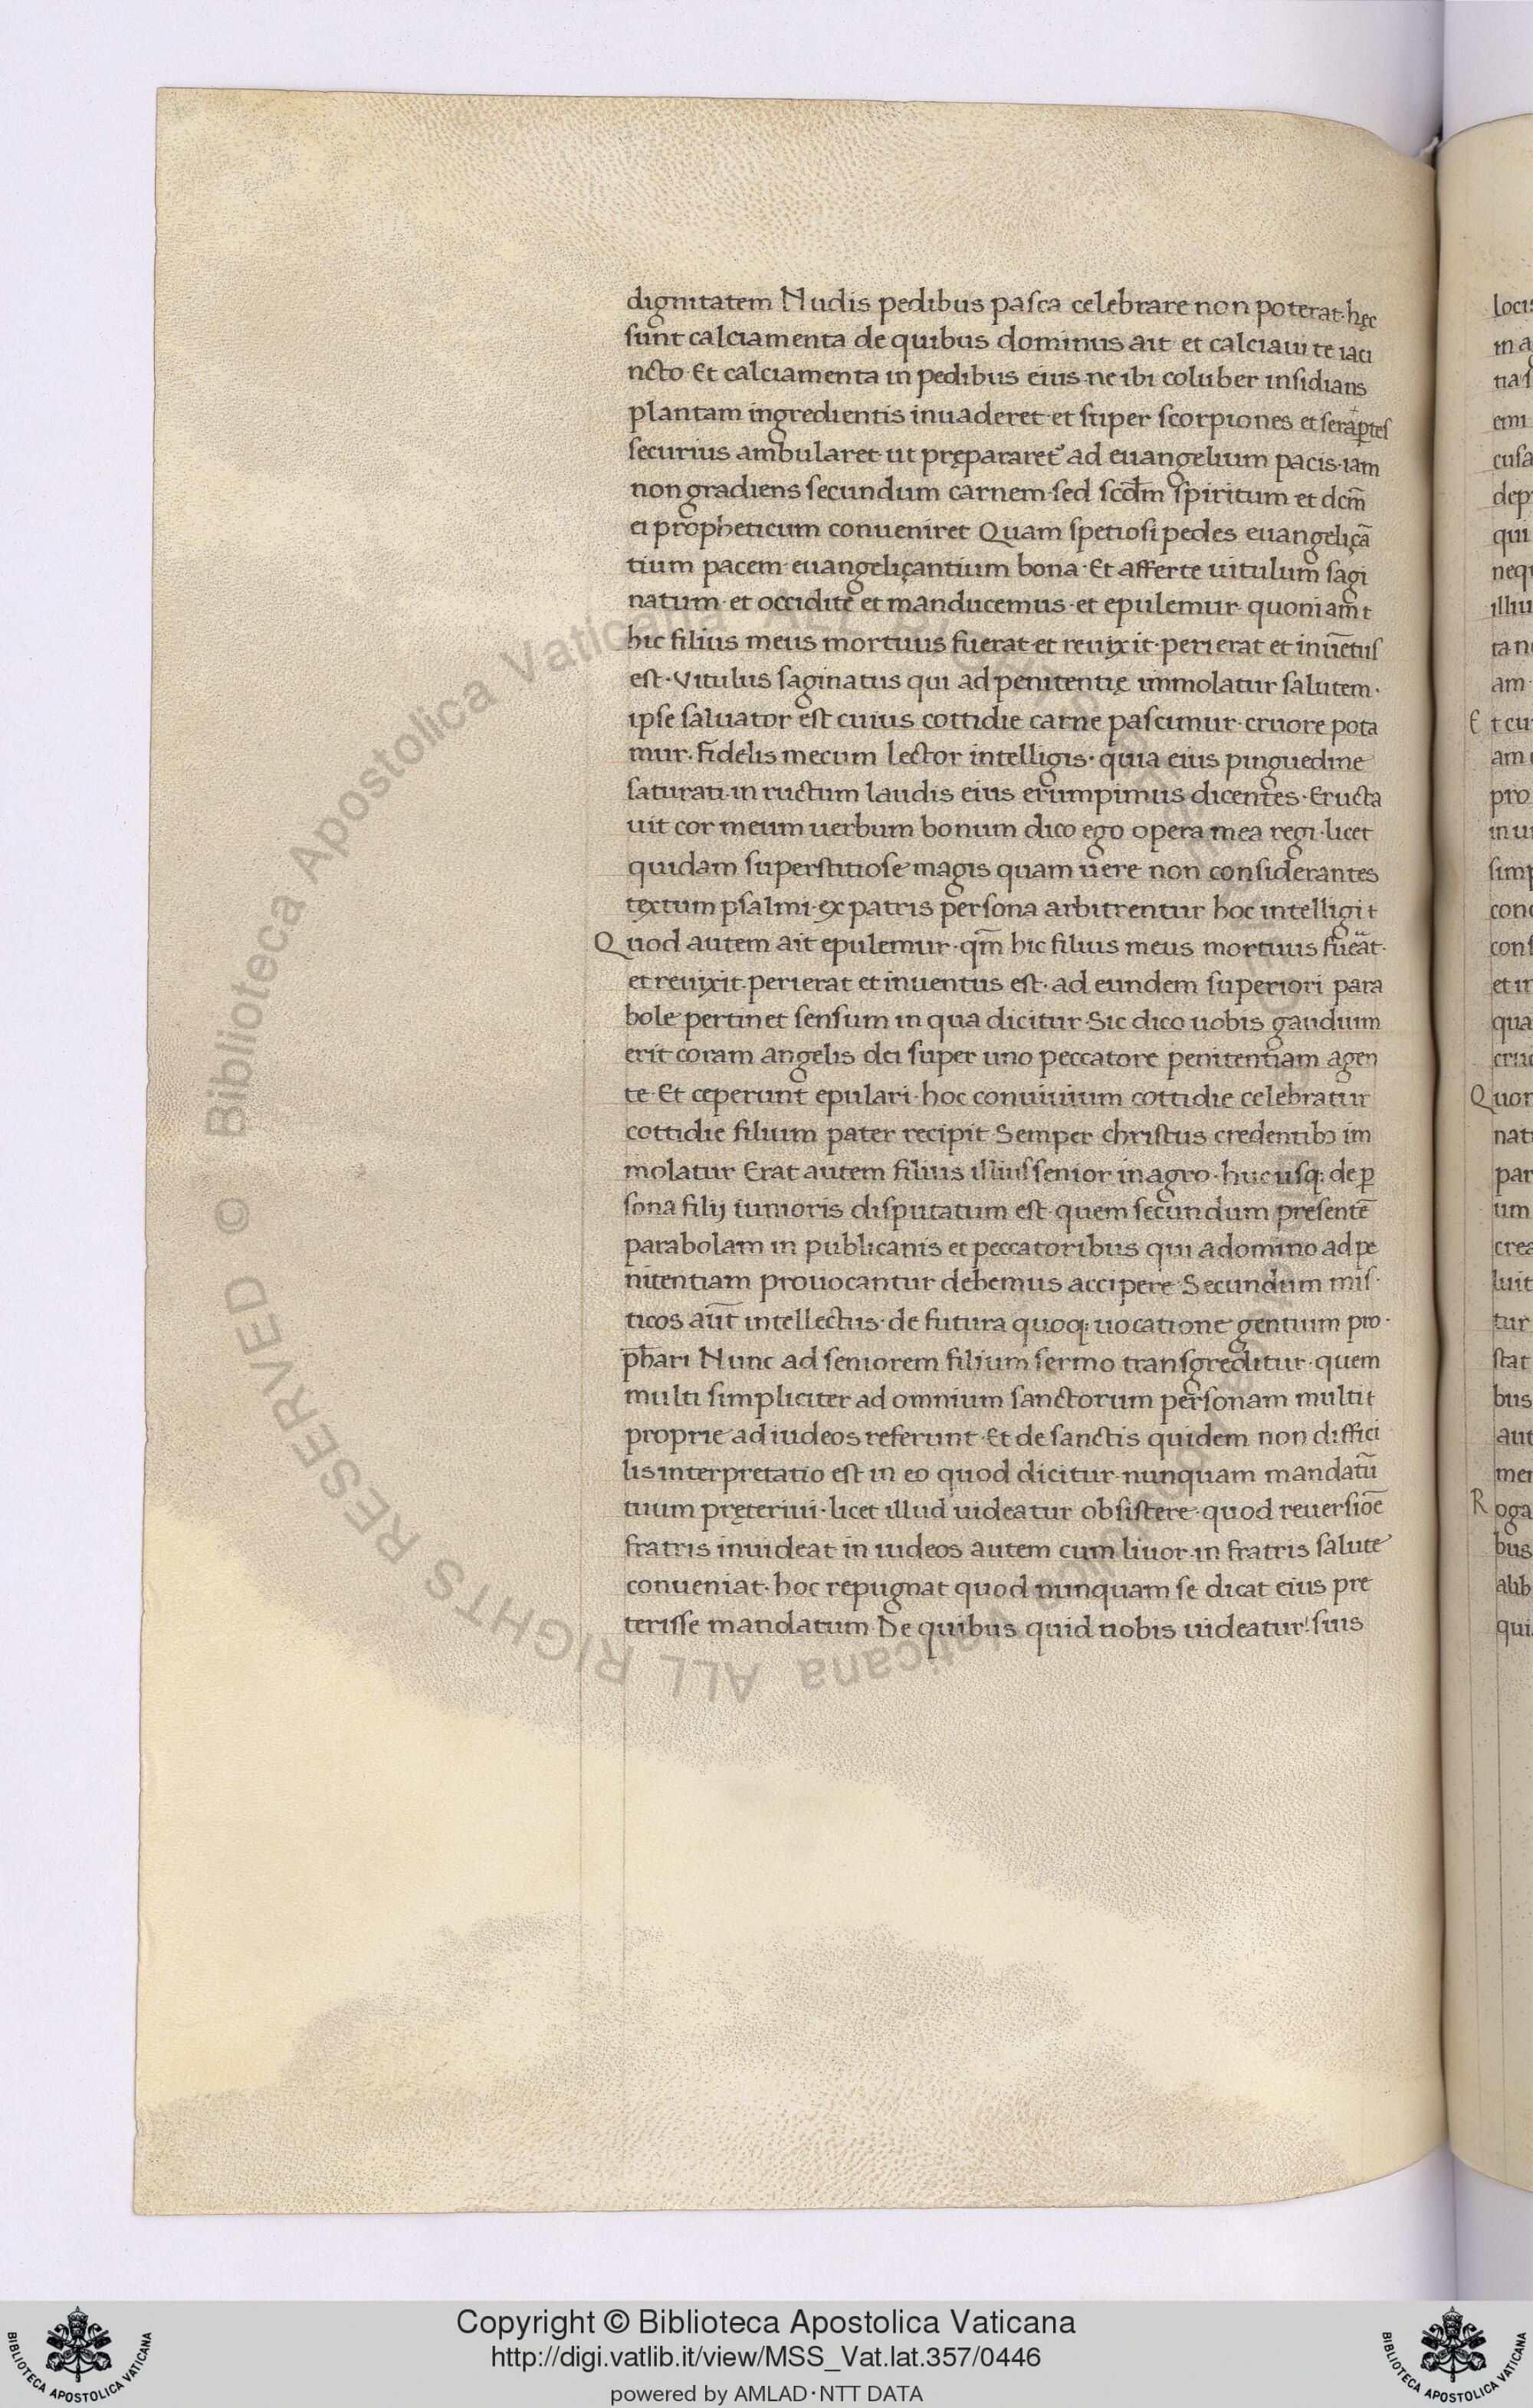 dignitatem Nudis pedibus pasca celebrare non poterat· hęc
sunt calciamenta de quibus dominus ait et calciaui te iaci
ncto Et calciamenta in pedibus eius ne ibi coluber insidians
plantam ingredientis inuaderet et super scorpiones et
securius ambularet ut prępararet᾿ ad euangelium pacis· iam
non gradiens secundum carnem· sed scd̄m spiritum et dcm̄
ei propheticum conueniret Quam spetiosi pedes euangeliçā
tium pacem· euangeliçantium bona· Et afferte uitulum sagi
natum· et occidite et manducemus· et epulemur quoniam t
hic filius meus mortuus fuerat et reuixit· perierat et inuētus
est· Vitulus saginatus qui ad penitentię immolatur salutem·
ipse saluator est cuius cottidie carne pascimur· cruore pota
mur· Fidelis mecum lector intelligis· quia eius pinguedine
saturati in ructum laudis eius erumpimus dicentes· Eructa
uit cor meum uerbum bonum dico ego opera mea regi· licet
quidam superstitiose magis quam uere non considerantes
textum psalmi· ex patris persona arbitrentur hoc intelligi t
Quod autem ait epulemur· qm̄ hic filius meus mortuus fueat·
et reuixit perierat et inuentus est· ad eundem superiori para
bole pertinet sensum in qua dicitur Sic dico uobis gaudium
erit coram angelis dei super uno peccatore penitentiam agen
te· Et ceperunt epulari· hoc conuiuium cottidie celebratur
cottidie filium pater recipit Semper christus credentibꝫ im
molatur Erat autem filius illius senior in agro· huc usq; de ꝑ
sona filij iunioris disputatum est· quem secundum presentē
parabolam in publicanis et peccatoribus qui adomino ad pe
nitentiam prouocantur debemus accipere Secundum mis·
ticos aūt intellectus· de futura quoq; uocatione gentium pro·
ph̄ari Nunc ad seniorem filium sermo transgreditur· quem
multi simpliciter ad omnium sanctorum personam multi t
proprie ad iudeos referunt· Et de sanctis quidem non diffici
lis interpretatio est in eo quod dicitur· nunquam mandatū
tuum pręteriui· licet illud uideatur obsistere· quod reuersiōe
fratris inuideat in iudeos autem cum liuor in fratris salute
conueniat· hoc repugnat quod nunquam se dicat eius pre
terisse mandatum De quibus quid nobis uideatur! suis
locis
in a
tias
emi
cusa
dep
qui
neq
illiu
tan
am
Et cu
am
pro
in u
simp
conc
cons
et in
qua
cruc
Quon
nat
par
um
crea
luit
tur
stat
bus
aut
mer
Roga
bus
alib
qui
© Biblioteca Apostolica Vaticana ALL RIGHTS RESERVED
Copyright © Biblioteca Apostolica Vaticana
http://digi.vatlib.it/view/MSS_Vat.lat.357/0446
powered by AMLAD·NTT DATA
BIBLIOTECA APOSTOLICA VATICANA
BIBLIOTECA APOSTOLICA VATICANA